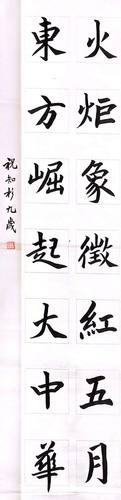 火炬象徵紅五月
東方崛起大中華
祝知杉九歲